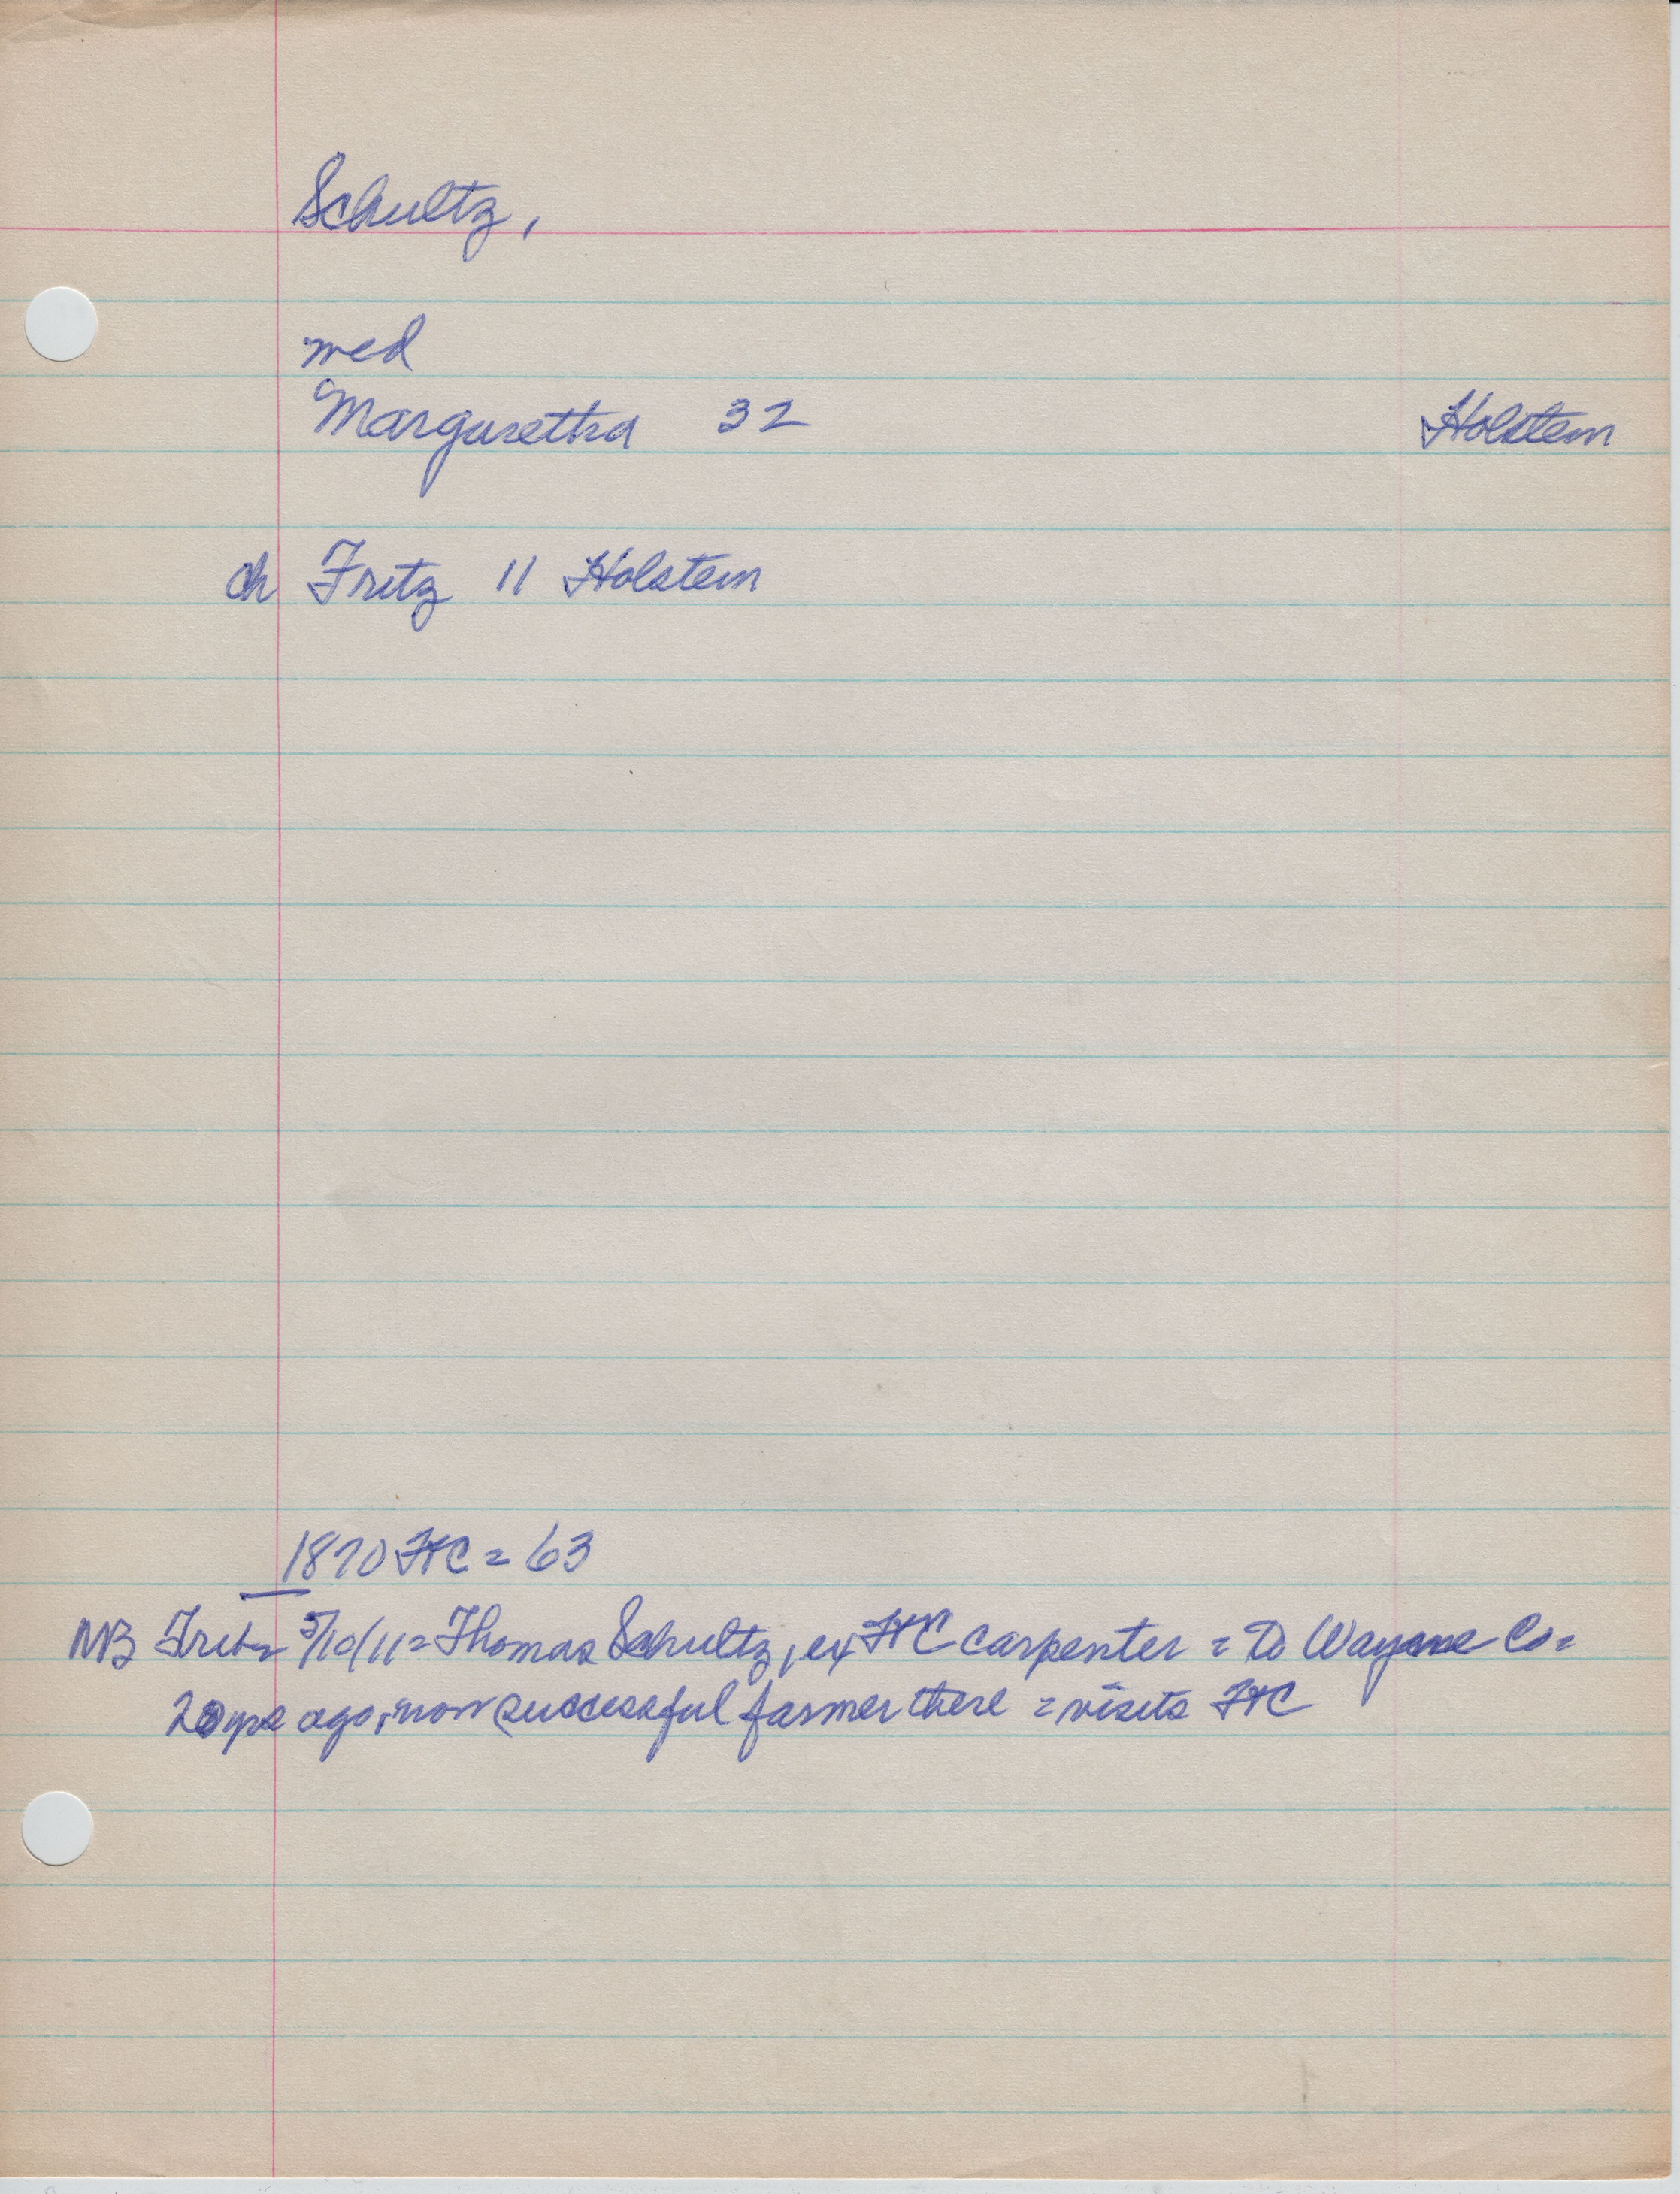 Schultz,
wed
Margaretha 32 Holstein
ch Fritz 11 Holstein
1870 FtC = 63
NB Trib 5/10/11 = Thomas Schultz, ex FtC carpenter = to Wayne Co =
20 yrs ago, now successful farmer there = visits FtC